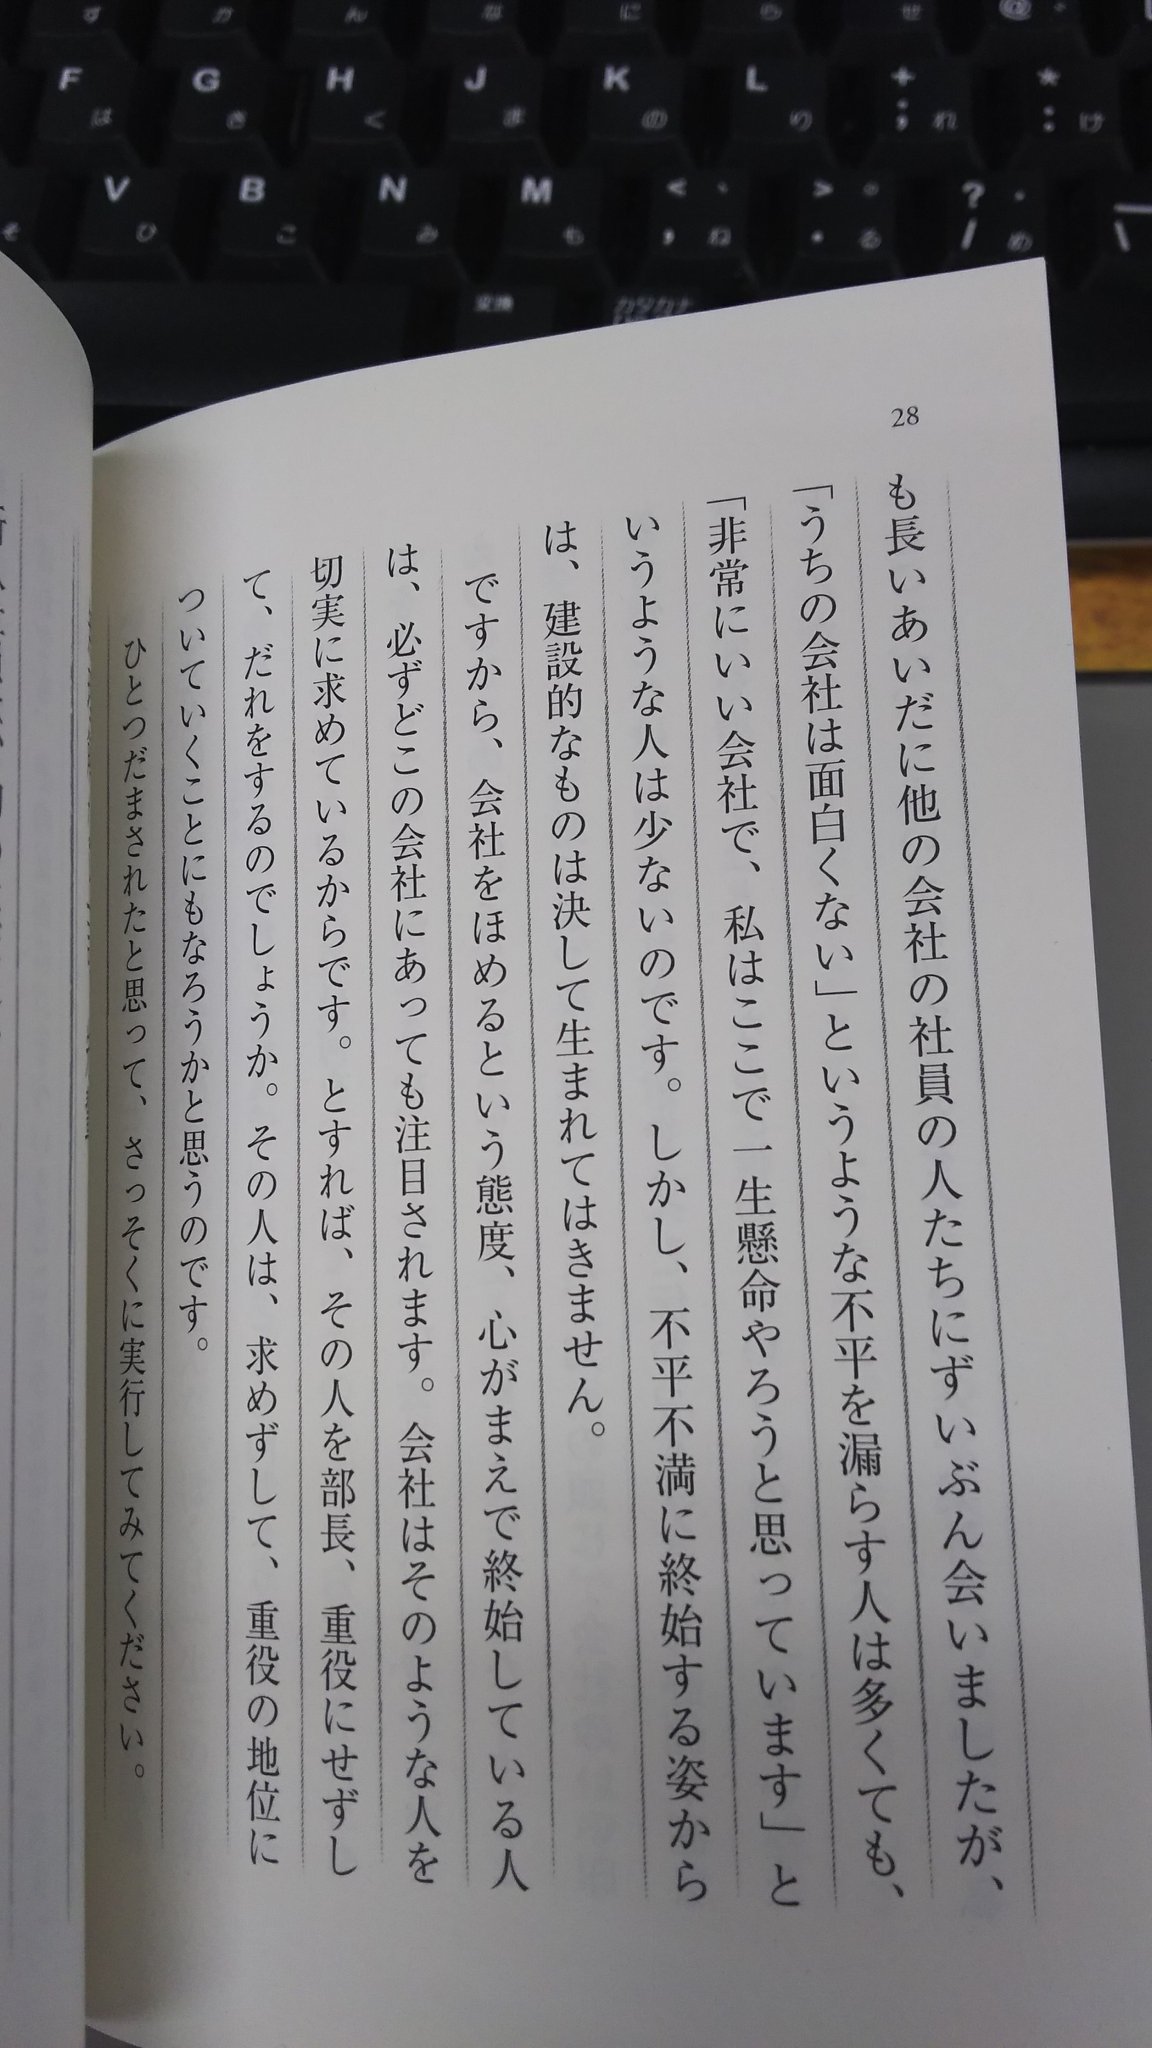 す か ん な に ら せ @
F は G き H く J ま K の L り + ; れ * : け
そ V ひ B こ N み M も < 、 , ね > 。 . る ? ・ / め \
変換 カタカナ
28
も長いあいだに他の会社の社員の人たちにずいぶん会いましたが、
「うちの会社は面白くない」というような不平を漏らす人は多くても、
「非常にいい会社で、私はここで一生懸命やろうと思っています」と
いうような人は少ないのです。しかし、不平不満に終始する姿から
は、建設的なものは決して生まれてはきません。
ですから、会社をほめるという態度、心がまえで終始している人
は、必ずどこの会社にあっても注目されます。会社はそのような人を
切実に求めているからです。とすれば、その人を部長、重役にせずし
て、だれをするのでしょうか。その人は、求めずして、重役の地位に
ついていくことにもなろうかと思うのです。
ひとつだまされたと思って、さっそくに実行してみてください。